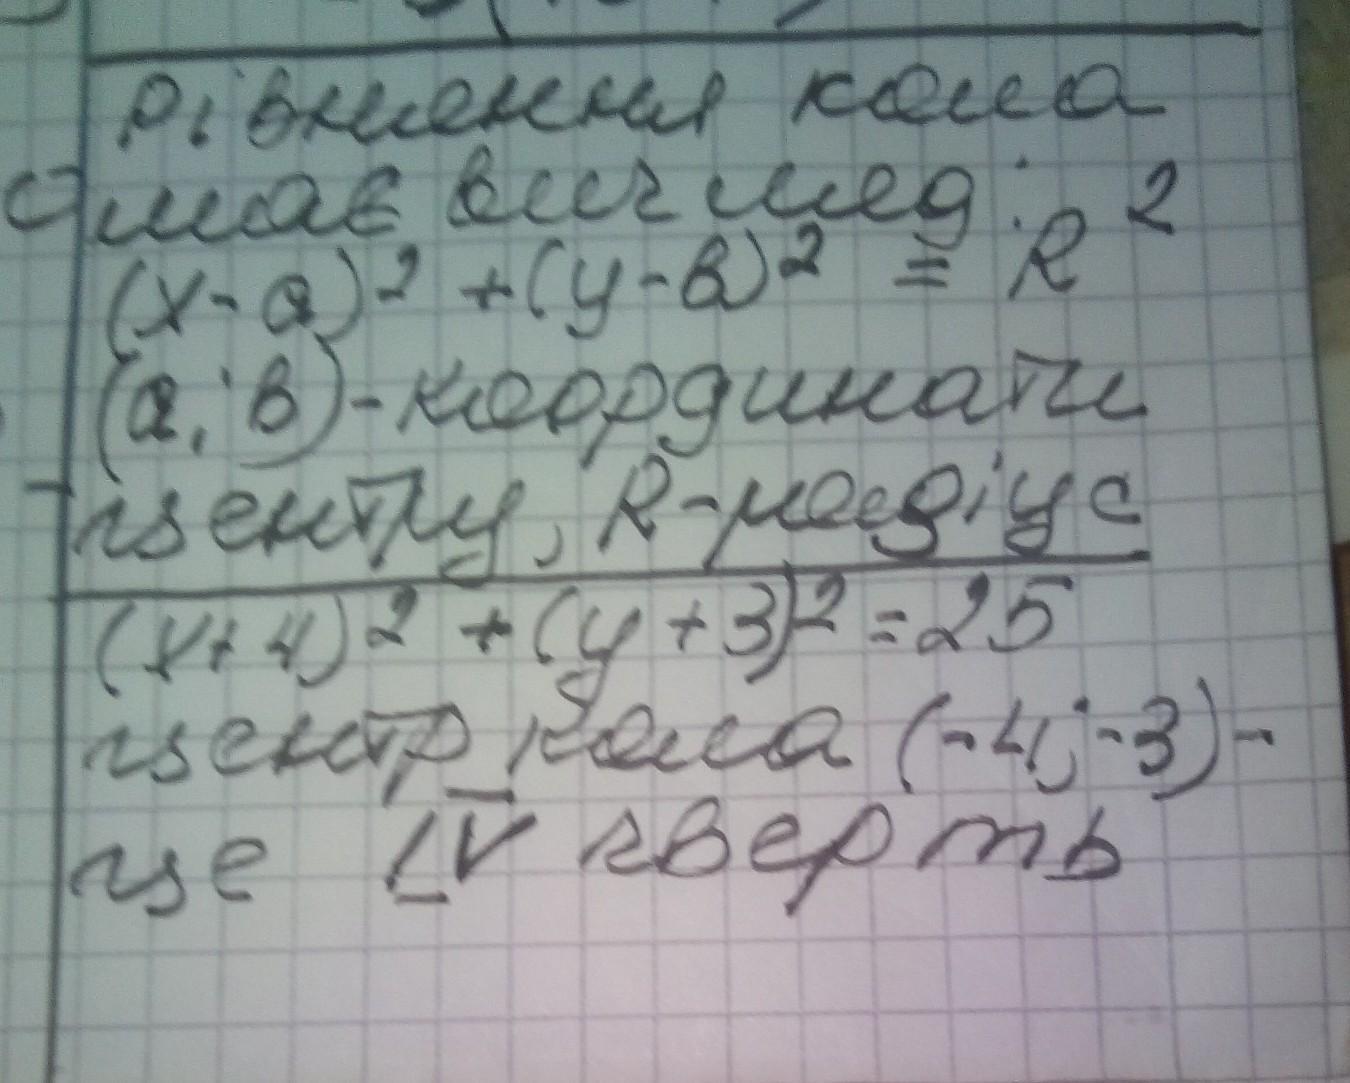 Рівняння кола
має вигляд:
(x-a)² + (y-в)² = R²
(a; в) - координати
центру, R - радіус
(x+4)² + (y+3)² = 25
центр кола (-4; -3) -
це IV чверть